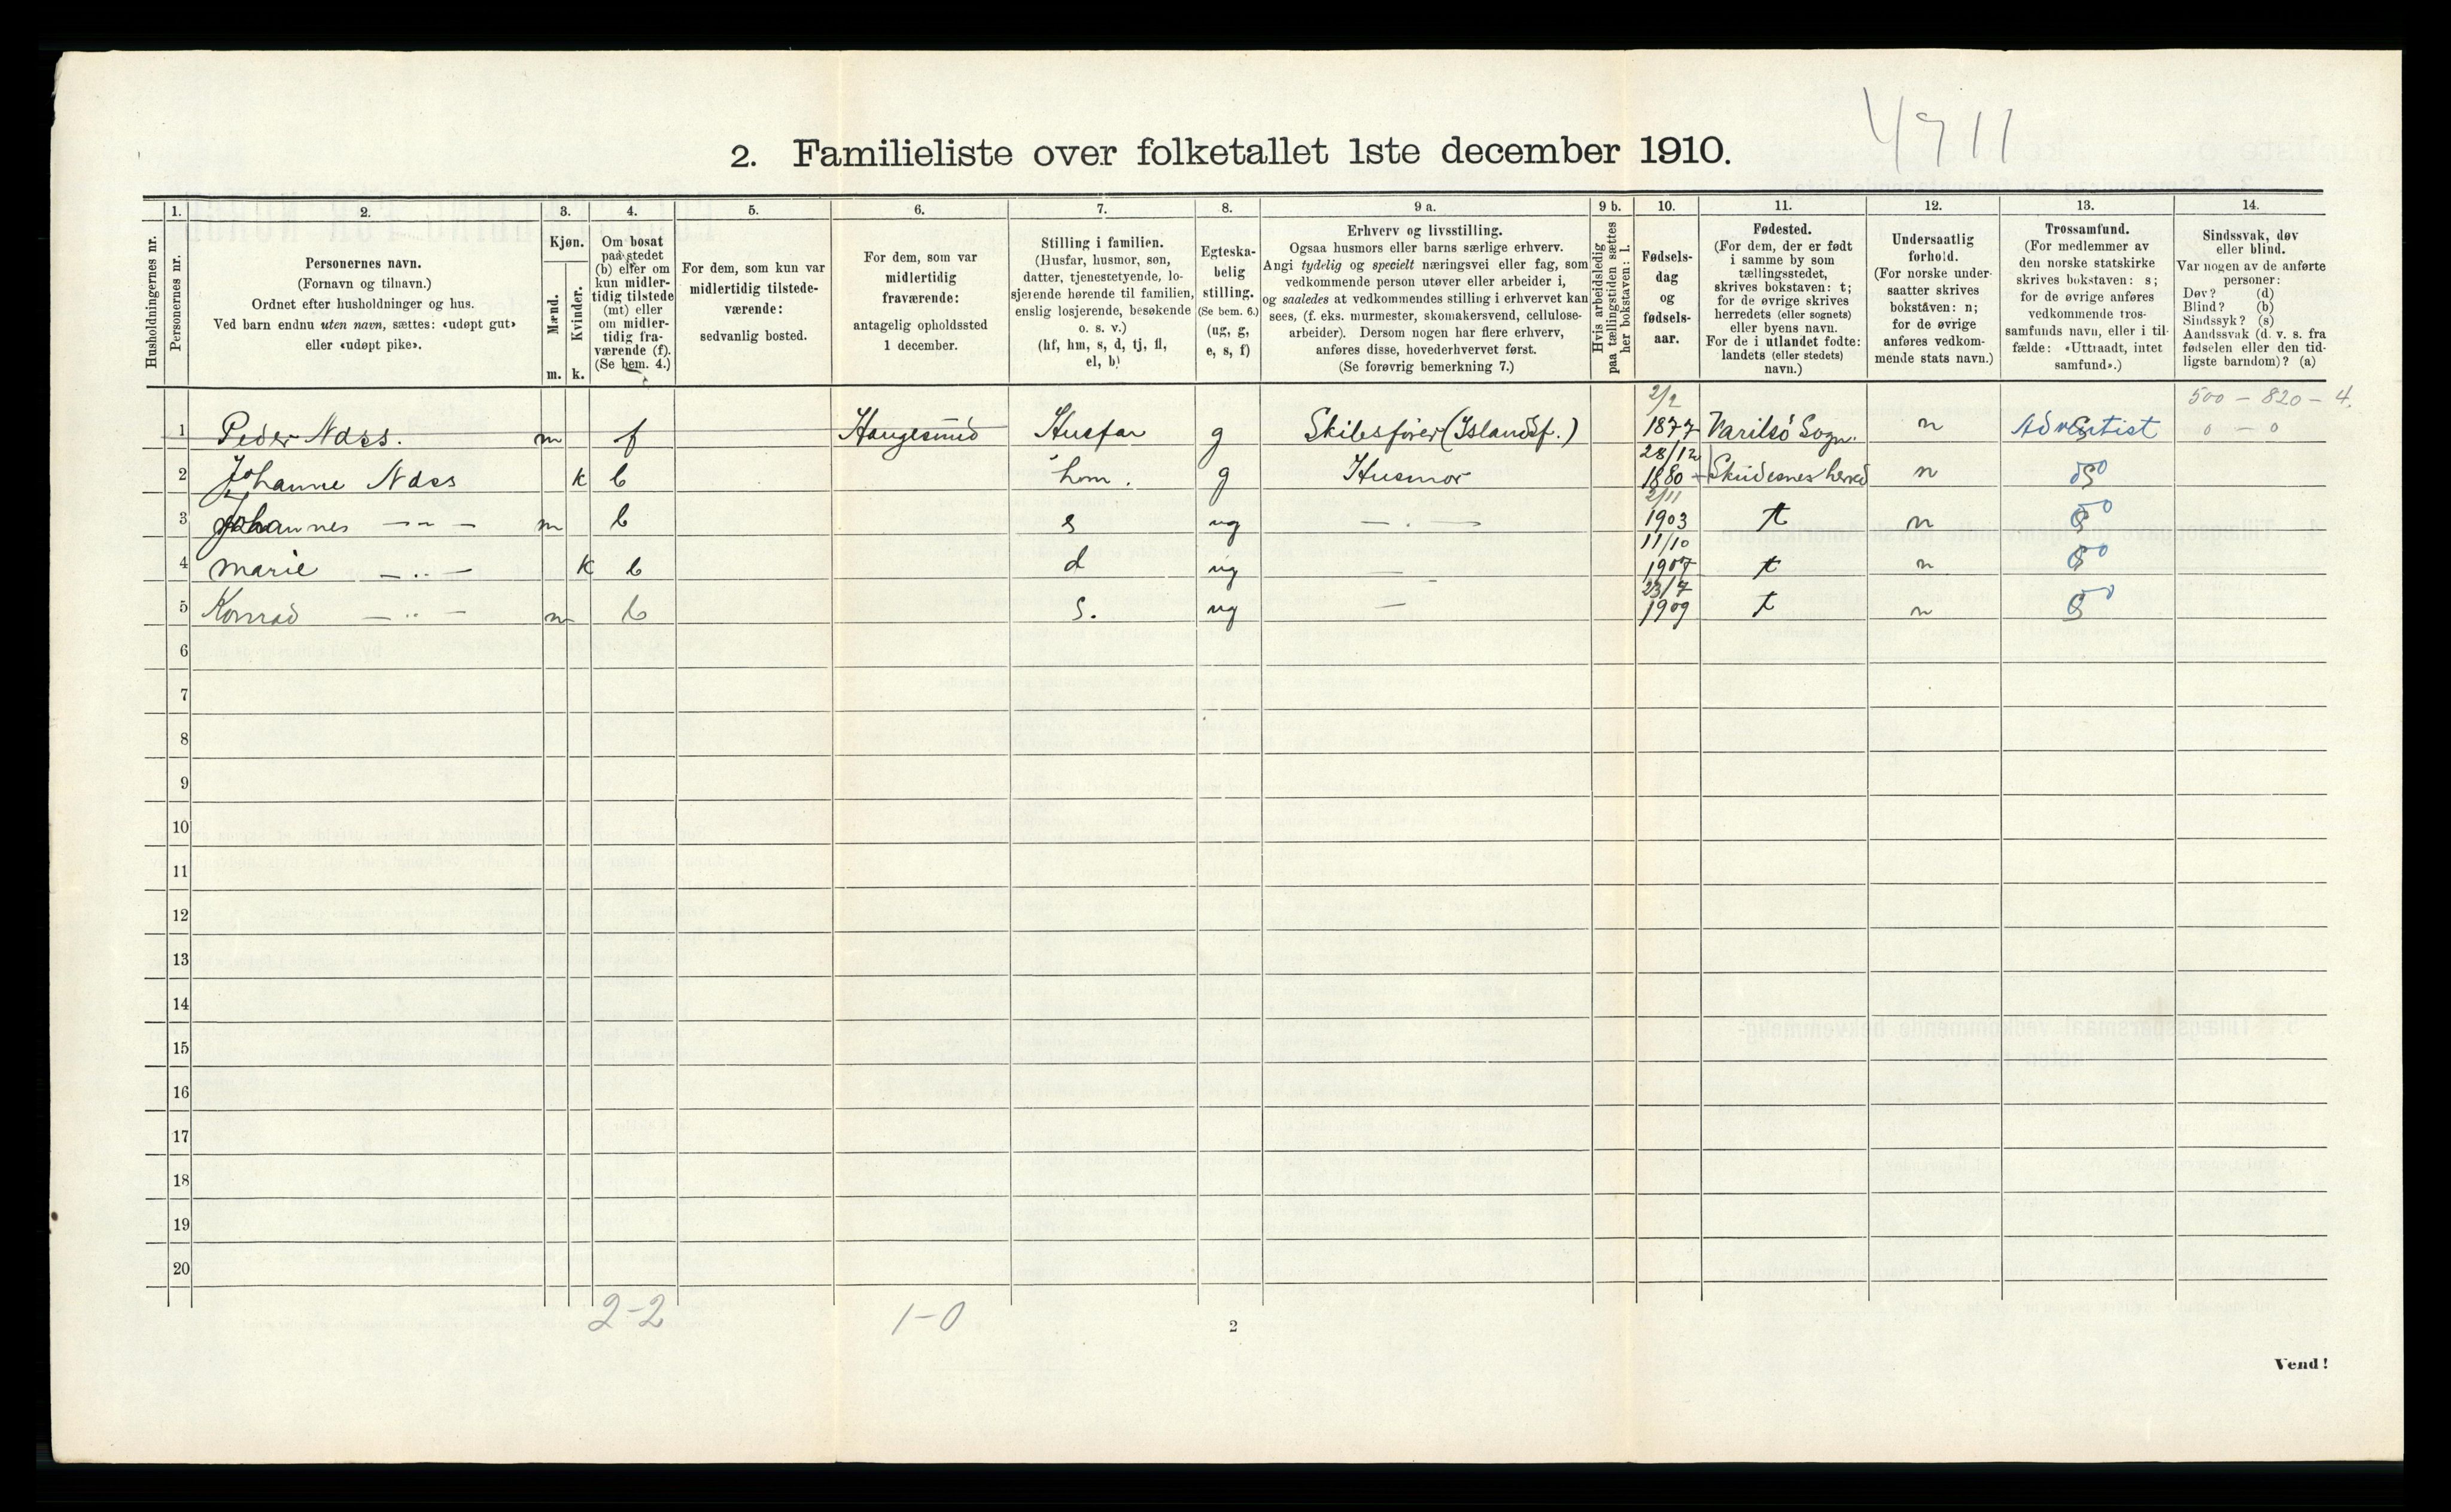 4911
2. Familieliste over folketallet 1ste december 1910.
1. 2. 3. 4. 5. 6. 7. 8. 9 a. 9 b. 10. 11. 12. 13. 14.
Husholdningernes nr.
Personernes nr.
Personernes navn.
(Fornavn og tilnavn.)
Ordnet efter husholdninger og hus.
Ved barn endnu uten navn, sættes: «udøpt gut»
eller «udøpt pike».
Kjøn.
Mænd.
Kvinder.
m. k.
Om bosat
paa stedet
(b) eller om
kun midler-
tidig tilstede
(mt) eller
om midler-
tidig fra-
værende (f).
(Se bem. 4.)
For dem, som kun var
midlertidig tilstede-
værende:
sedvanlig bosted.
For dem, som var
midlertidig
fraværende:
antagelig opholdssted
1 december.
Stilling i familien.
(Husfar, husmor, søn,
datter, tjenestetyende, lo-
sjerende hørende til familien,
enslig losjerende, besøkende
o. s. v.)
(hf, hm, s, d, tj, fl,
el, b)
Egteska-
belig
stilling.
(Se bem. 6.)
(ug, g,
e, s, f)
Erhverv og livsstilling.
Ogsaa husmors eller barns særlige erhverv.
Angi tydelig og specielt næringsvei eller fag, som
vedkommende person utøver eller arbeider i,
og saaledes at vedkommendes stilling i erhvervet kan
sees, (f. eks. murmester, skomakersvend, cellulose-
arbeider). Dersom nogen har flere erhverv,
anføres disse, hovederhvervet først.
(Se forøvrig bemerkning 7.)
Hvis arbeidsledig
paa tællingstiden sættes
her bokstaven: l.
Fødsels-
dag
og
fødsels-
aar.
Fødested.
(For dem, der er født
i samme by som
tællingsstedet,
skrives bokstaven: t;
for de øvrige skrives
herredets (eller sognets)
eller byens navn.
For de i utlandet fødte:
landets (eller stedets)
navn.)
Undersaatlig
forhold.
(For norske under-
saatter skrives
bokstaven: n;
for de øvrige
anføres vedkom-
mende stats navn.)
Trossamfund.
(For medlemmer av
den norske statskirke
skrives bokstaven: s;
for de øvrige anføres
vedkommende tros-
samfunds navn, eller i til-
fælde: «Uttraadt, intet
samfund».)
Sindssvak, døv
eller blind.
Var nogen av de anførte
personer:
Døv? (d)
Blind? (b)
Sindssyk? (s)
Aandssvak (d. v. s. fra
fødselen eller den tid-
ligste barndom)? (a)
500 - 820 - 4.
1 Peder Næss. m f Haugesund Husfar g Skibsfører (Islandsf.) 2/2 1877 Varilsö Sogn. n Adventist 0 - 0
2 Johanne Næss k b hm. g Husmor 28/12 1880 Skudesnes herred n
3 Johannes -"- m b s ug - . - 2/11 1903 t n
4 Marie -"- k b d ug - 11/10 1907 t n
5 Konrad -"- m b s. ug - 23/7 1909 t n
6
7
8
9
10
11
12
13
14
15
16
17
18
19
20
2-2 1-0
2
Vend!